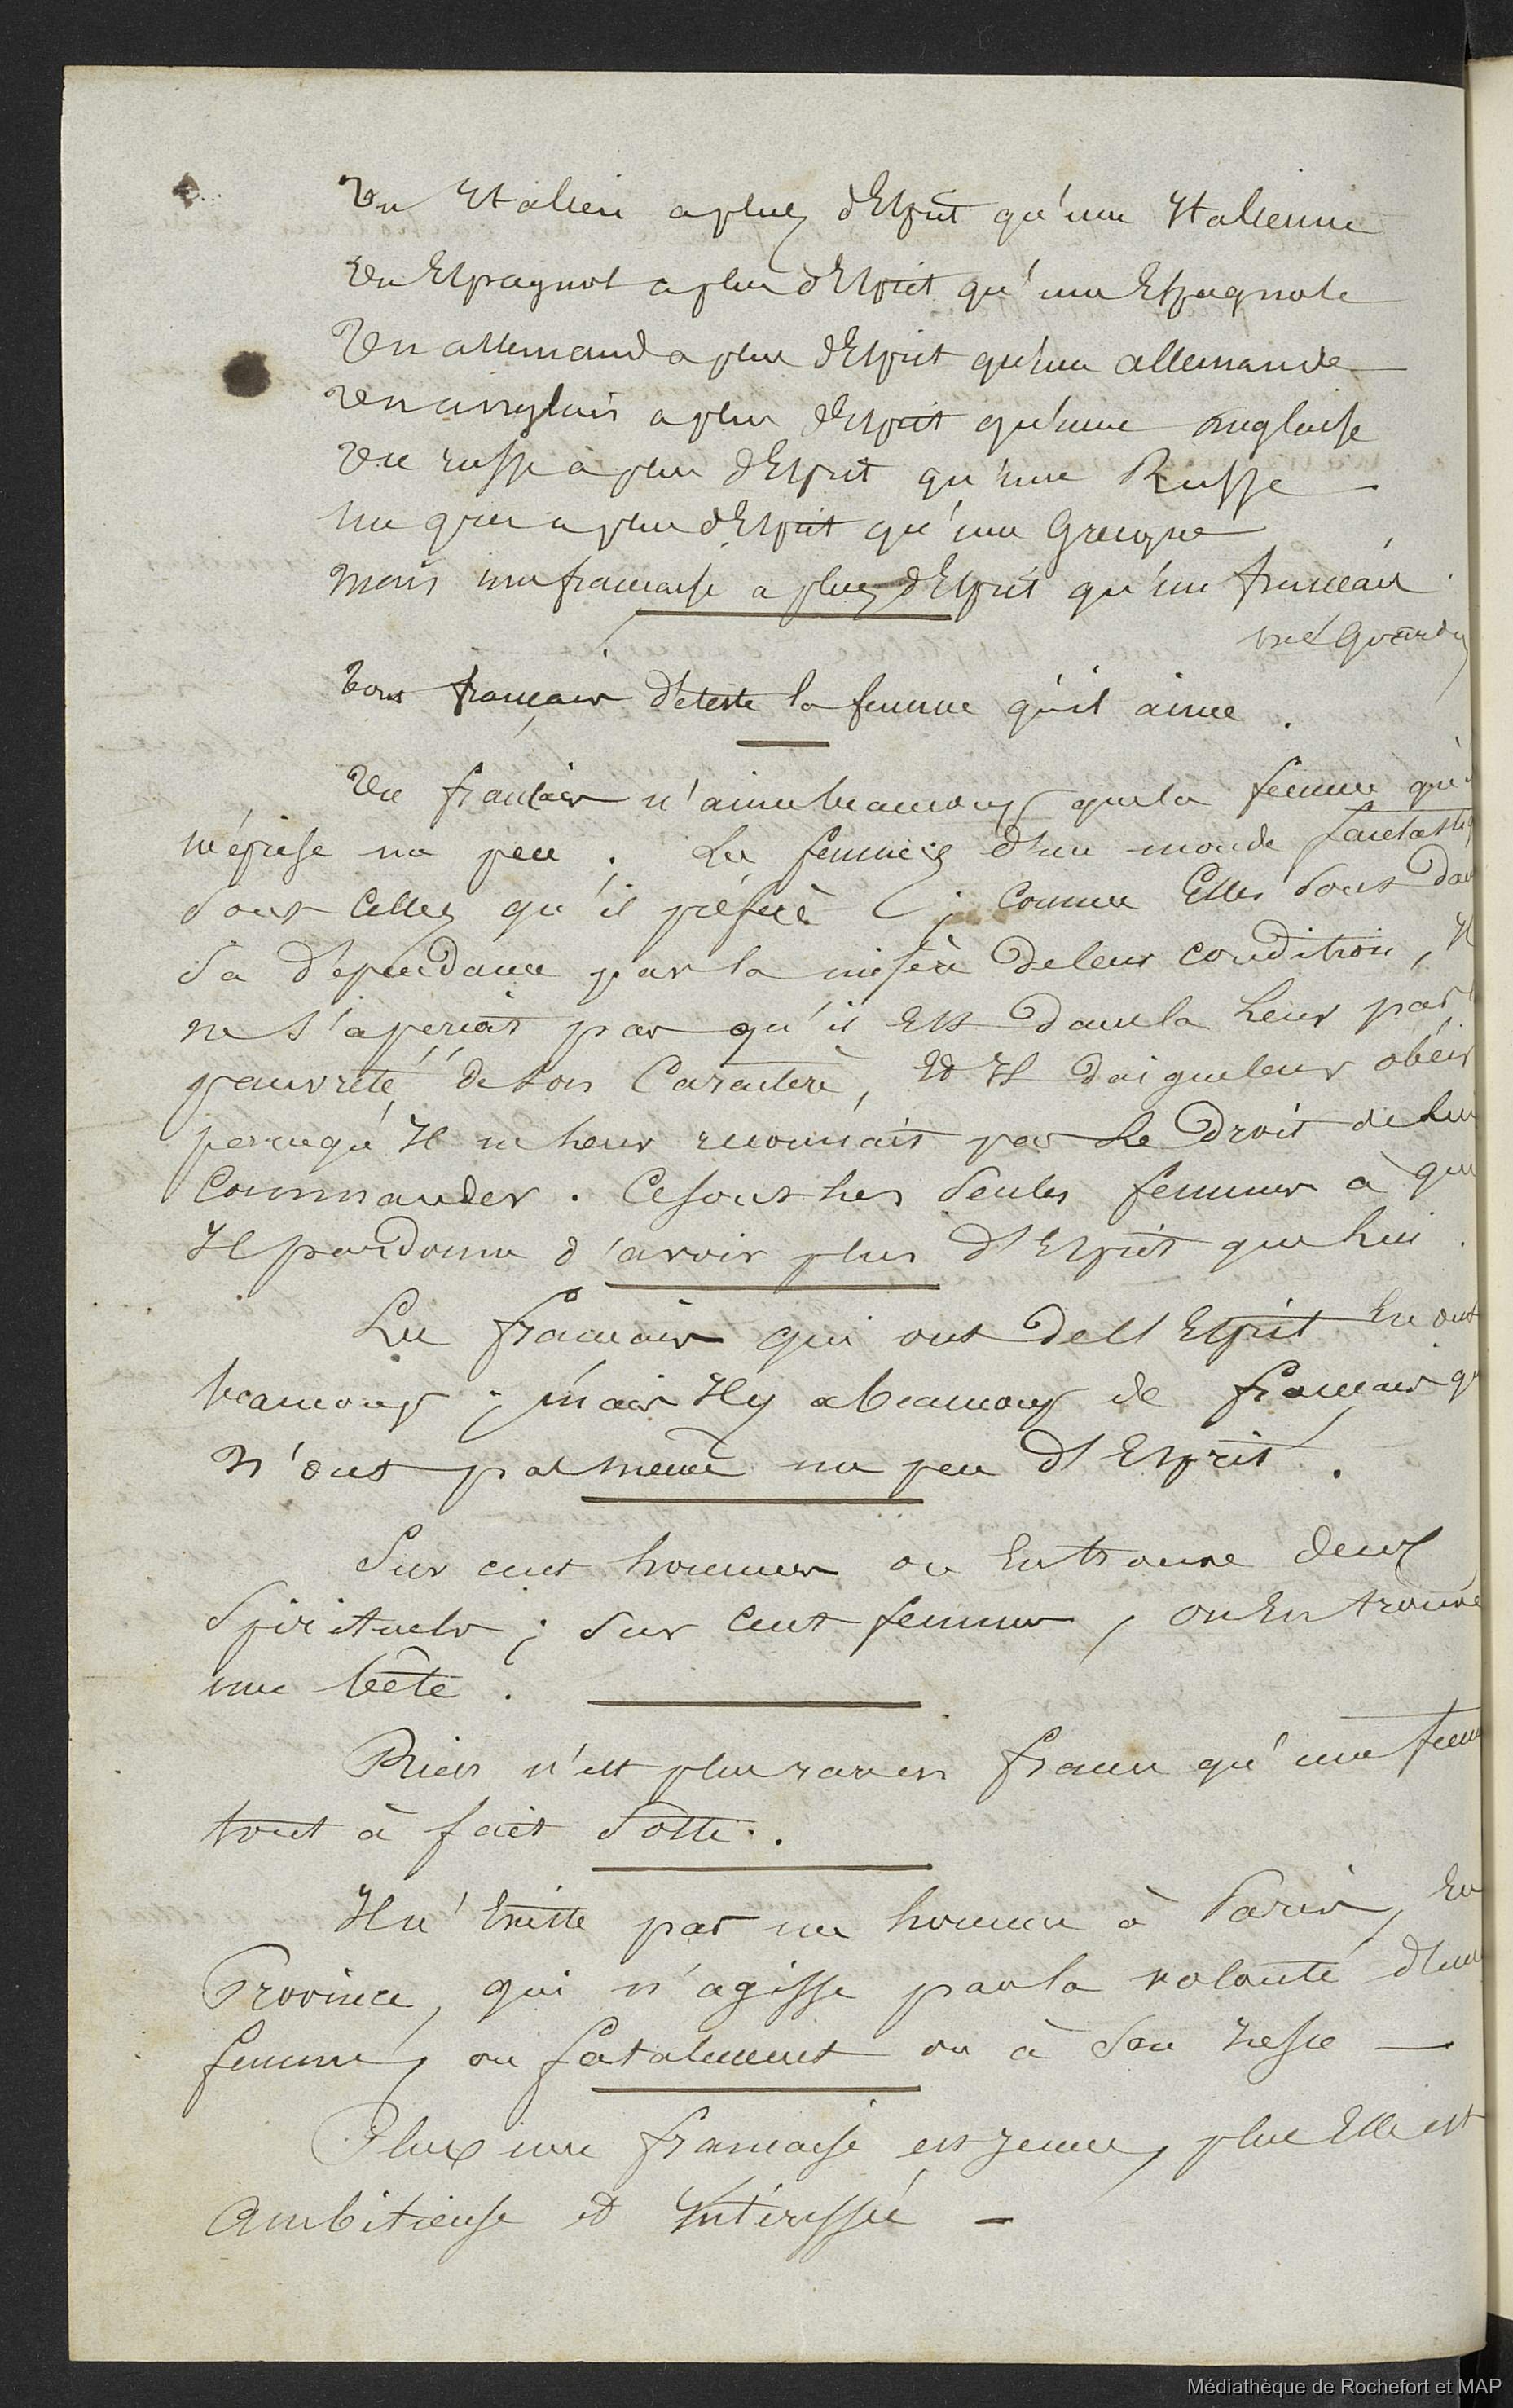 Un Italien a plus d'Esprit qu'une Italienne
Un Espagnol a plus d'Esprit qu'une Espagnole
Un allemand a plus d'Esprit qu'une allemande
Un anglais a plus d'Esprit qu'une anglaise
Un russe a plus d'Esprit qu'une Russe
un grec a plus d'Esprit qu'une Grecque
Mais une française a plus d'Esprit qu'un français.
Girardin
Tout français déteste la femme qu'il aime.
Un français n'aime beaucoup que la femme qu'il
méprise un peu. Les femmes d'un monde fantastiq
sont celles qu'il préfère ; Comme Elles sont dans
sa dépendance par la misère de leur condition, Il
ne s'aperçoit pas qu'il Est dans la leur par
pauvreté de son Caractère, Et Il daigne leur obéir
parcequ'Il ne leur reconnait pas le Droit de lui
Commander. Ce sont les seules femmes à qui
Il pardonne d'avoir plus d'Esprit que lui.
Les français qui ont de l'Esprit En ont
beaucoup ; mais Il y a beaucoup de français qui
n'ont pas même un peu d'Esprit.
Sur cent hommes on En trouve deux
Spirituels ; sur Cent femmes, on En trouve
une bête.
Rien n'est plus rare en france qu'une femme
tout à fait Sotte.
Il n'Existe pas un homme à Paris, En
Province, qui n'agisse par la volonté d'une
femme, ou fatalement ou à son insu —
Plus une française est jeune, plus Elle est
Ambitieuse et Intéressée —
Médiathèque de Rochefort et MAP